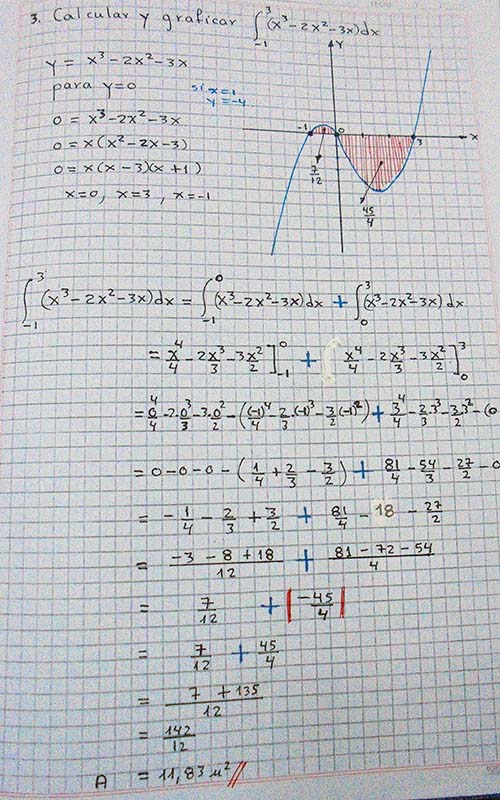 3. Calcular y graficar ∫₋₁³ (x³-2x²-3x)dx
y = x³-2x²-3x
para y=0
si x=1
y=-4
0 = x³-2x²-3x
0 = x(x²-2x-3)
0 = x(x-3)(x+1)
x=0, x=3, x=-1
Y
-1 0 3 x
7/12
45/4
∫₋₁³ (x³-2x²-3x)dx = ∫₋₁⁰ (x³-2x²-3x)dx + ∫₀³ (x³-2x²-3x)dx
= x⁴/4 - 2x³/3 - 3x²/2 ]₋₁⁰ + x⁴/4 - 2x³/3 - 3x²/2 ]₀³
= 0⁴/4 - 2·0³/3 - 3·0²/2 - ((-1)⁴/4 - 2/3·(-1)³ - 3/2(-1)²) + 3⁴/4 - 2·3³/3 - 3·3²/2 - (0
= 0-0-0 - (1/4 + 2/3 - 3/2) + 81/4 - 54/3 - 27/2 - 0
= -1/4 - 2/3 + 3/2 + 81/4 - 18 - 27/2
= (-3-8+18)/12 + (81-72-54)/4
= 7/12 + |-45/4|
= 7/12 + 45/4
= (7+135)/12
= 142/12
A = 11,83 u²//